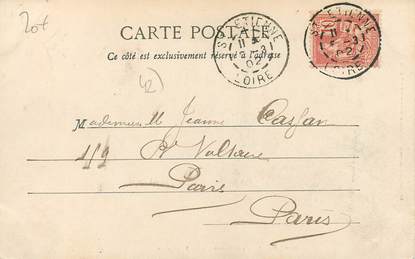 20f
CARTE POSTALE
Ce côté est exclusivement réservé à l'adresse
ST ETIENNE
LOIRE
02
ETIENNE
LOIRE
02
42
Mademoiselle Jeanne
Bd Voltaire
Paris
Paris